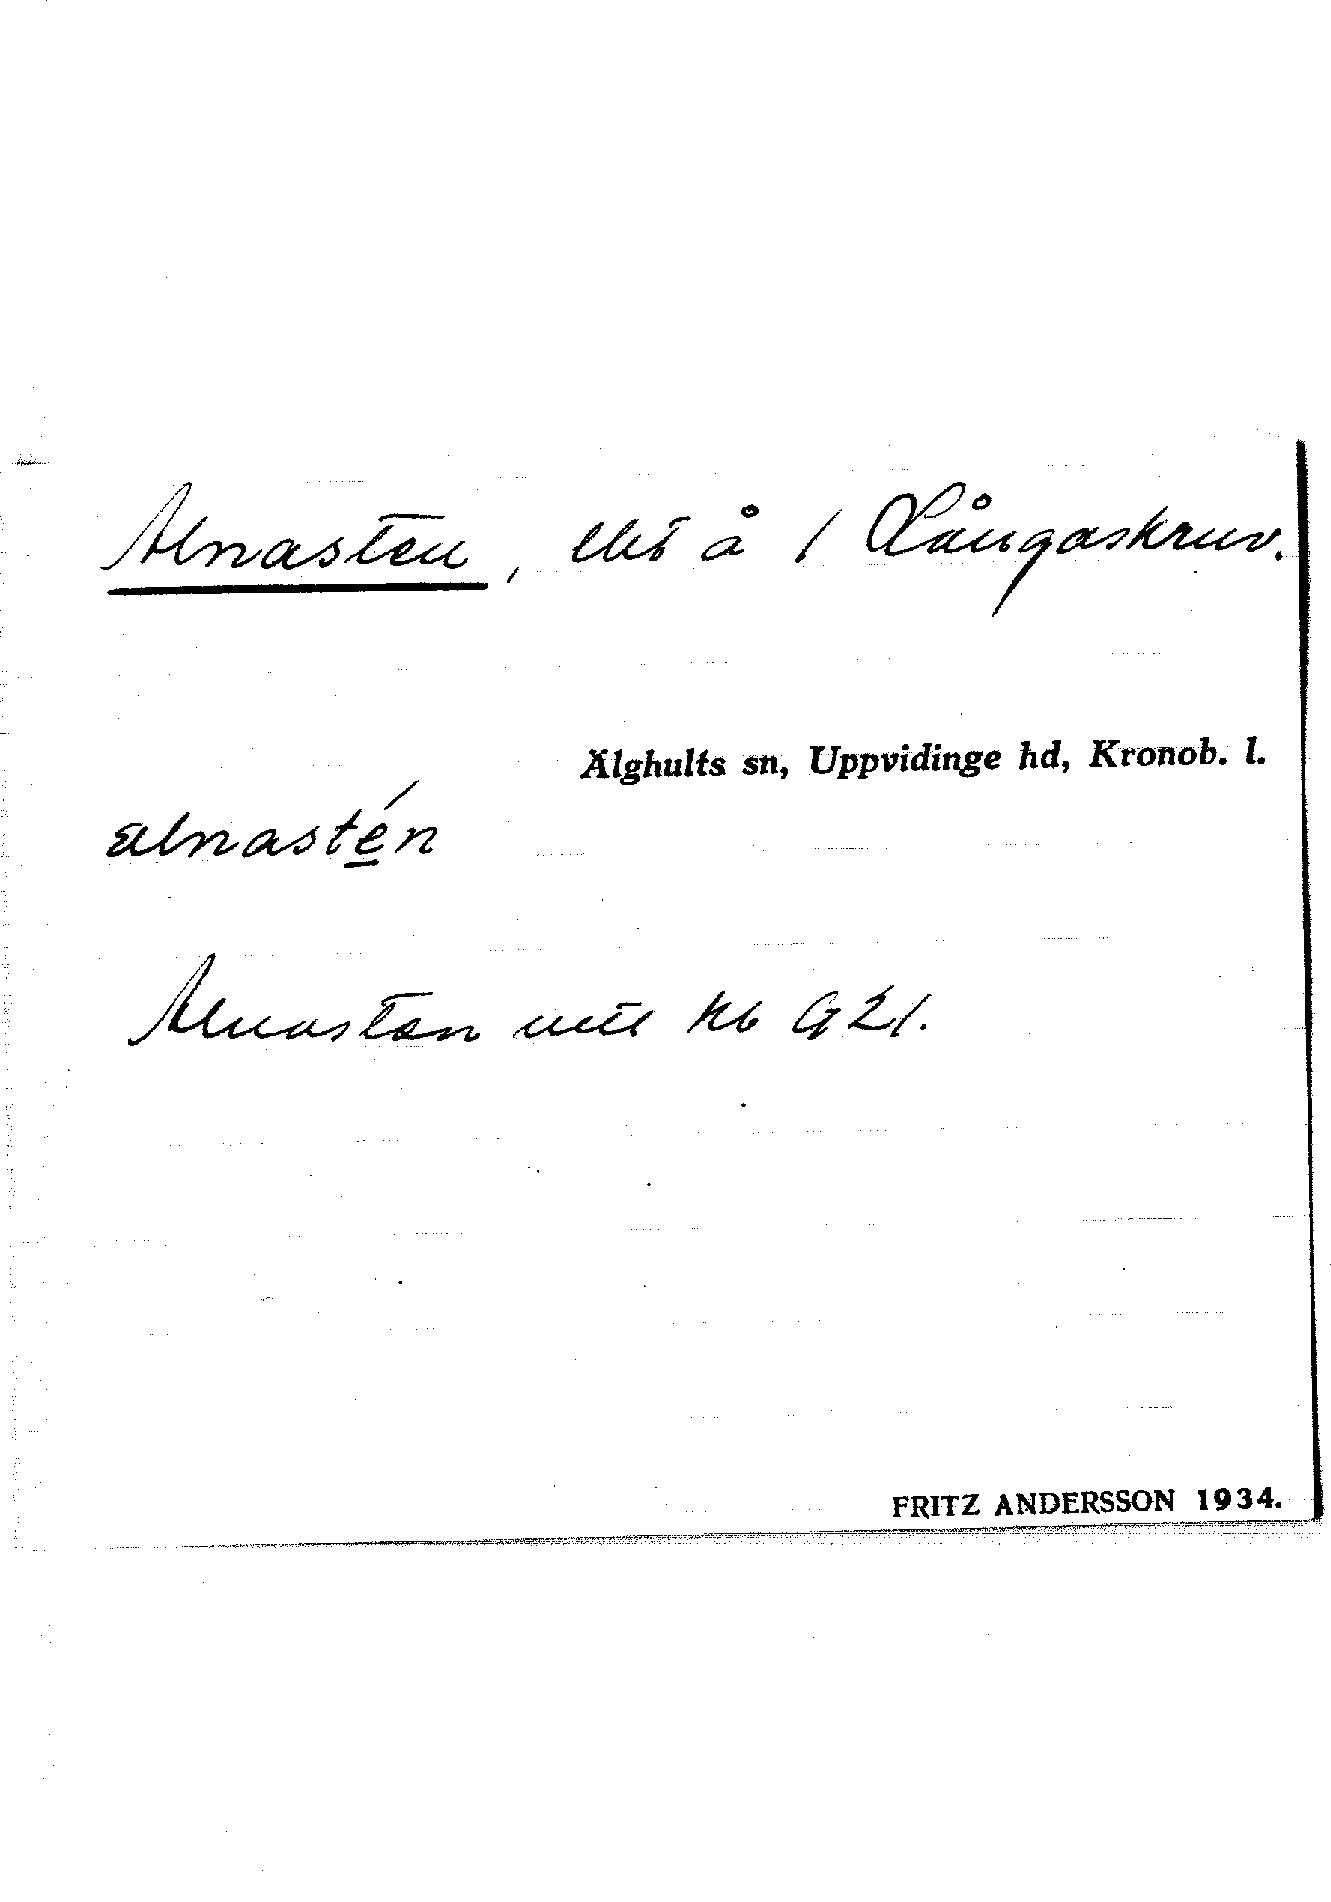 Alnasten, lht å 1 Långaskruv.
Älghults sn, Uppvidinge hd, Kronob. l.
alnastén
Alnastan Kb G21.
FRITZ ANDERSSON 1934.